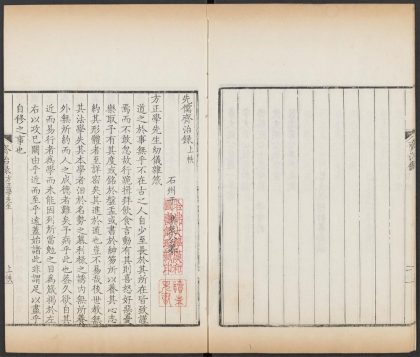 先儒齊治録 上帙
石州于
方正學先生幼儀雜箴
道之於事無乎不在古之人自少至長於其所在皆致謹
焉而不敢忽故行跪揖拜飲食言動有其則喜怒好惡憂
樂取予有其度或銘於盤盂或書於紳笏所以養其心志
約其形體者至詳密矣其進於道也豈不易哉後世教無
其法學失其本學者汨於名勢之慕利祿之誘内無所養
外無所約而人之成德者難矣予病乎此也蓋久欲自其
近而易行者為學而未能因列所當勉之目為箴揭於左
右以攻己闕由乎近而至乎遠蓋始諸此非謂足以盡乎
自修之事也
齊治録
上帙
齊治録